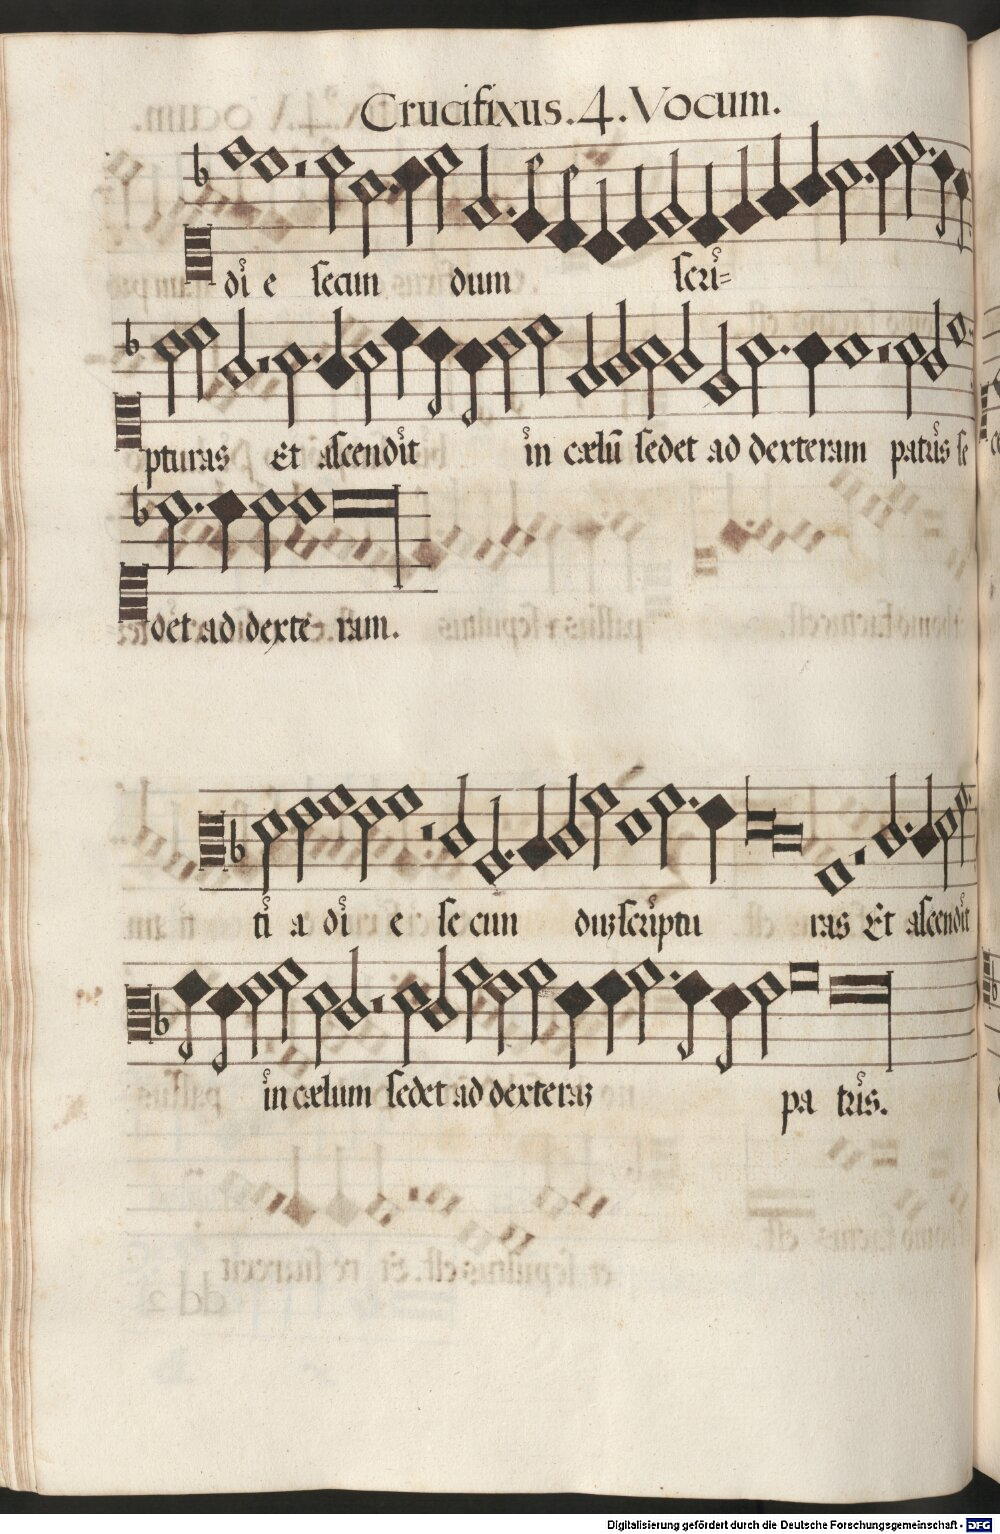 Crucifixus. 4. Vocum.
di e secun dum scri=
pturas Et ascendit in cælũ sedet ad dexteram patris se
det ad dexte ram.
ti a di e se cun duz scriptu ras Et ascendit
in cælum sedet ad dexteraz pa tris.
Digitalisierung gefördert durch die Deutsche Forschungsgemeinschaft - DFG